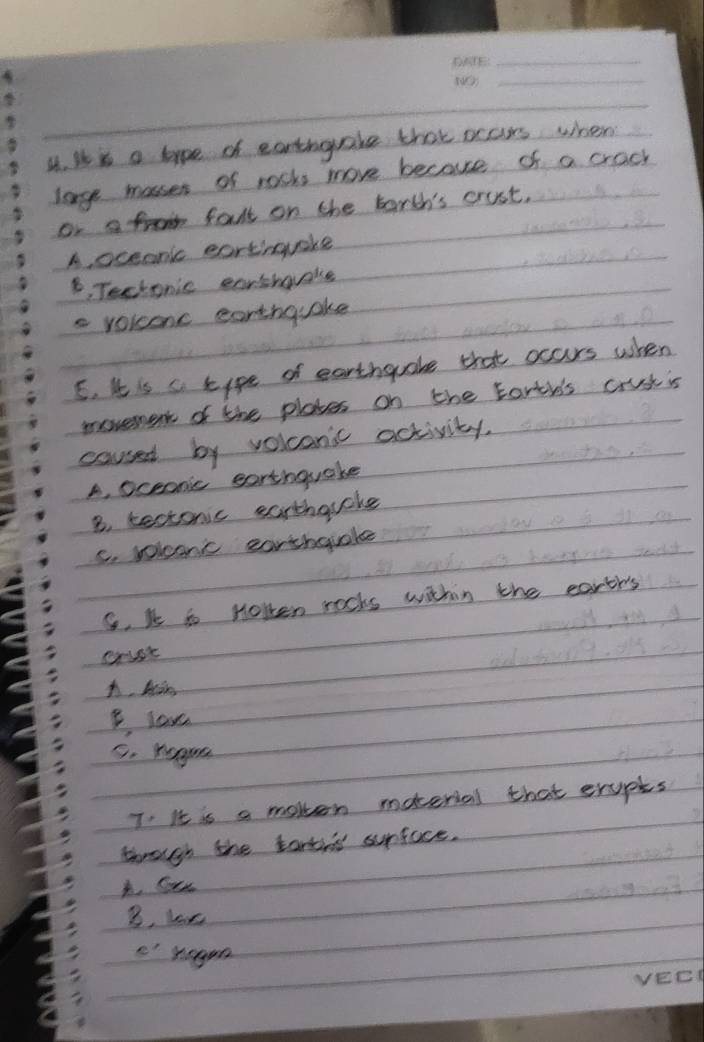 DATE:
NO:
4. It is a type of earthquake that occurs when
large masses of rocks move because of a crack
or a fault on the Earth's crust.
A. Oceanic earthquake
B. Tectonic earthquake
c volcanc earthquake
5. It is a type of earthquake that occurs when
movement of the plates on the Earth's crust is
caused by volcanic activity.
A. Oceanic earthquake
B. tectonic earthquake
C. volcanic earthquake
6. It is Molten rocks within the earth's
crust
A. Ash
B. lava
C. Magma
7. It is a molten material that erupts
through the Earth's surface.
A.
B. lava
C. magma
VECO